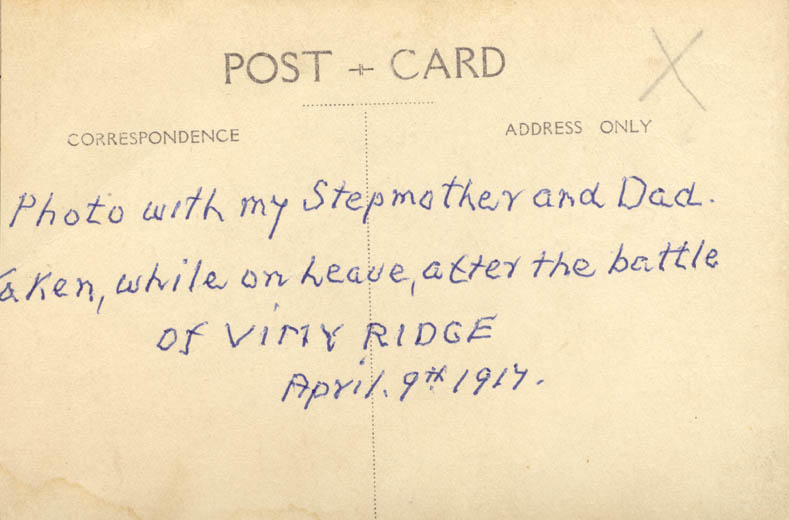 POST CARD
CORRESPONDENCE
ADDRESS ONLY
Photo with my Stepmother and Dad.
Taken, while on Leave, after the battle
of ViMY RIDGE
April. 9th 1917.